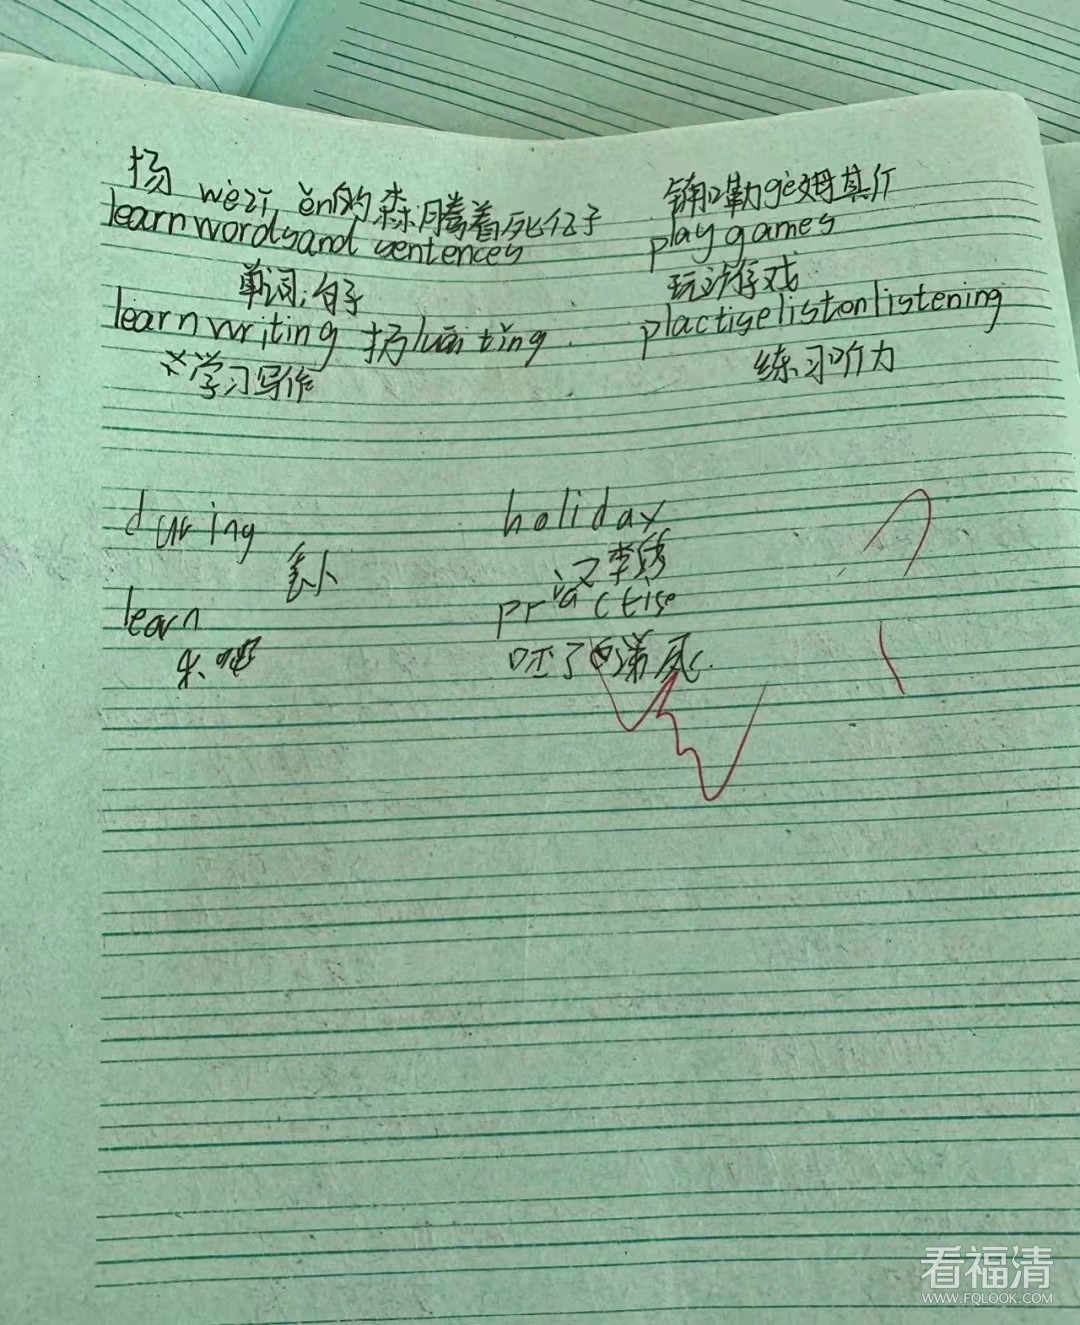 扬 wèzī ěn的森腾着死亿子
learnwordsand sentences
单词,句子
learnwriting 扬luǎi tǐng.
学习写作
铺勒gè姆其斤
play games
玩游戏
plactiselistonlistening
练习听力
during
holiday
learn
practise
看福清
WWW.FQLOOK.COM